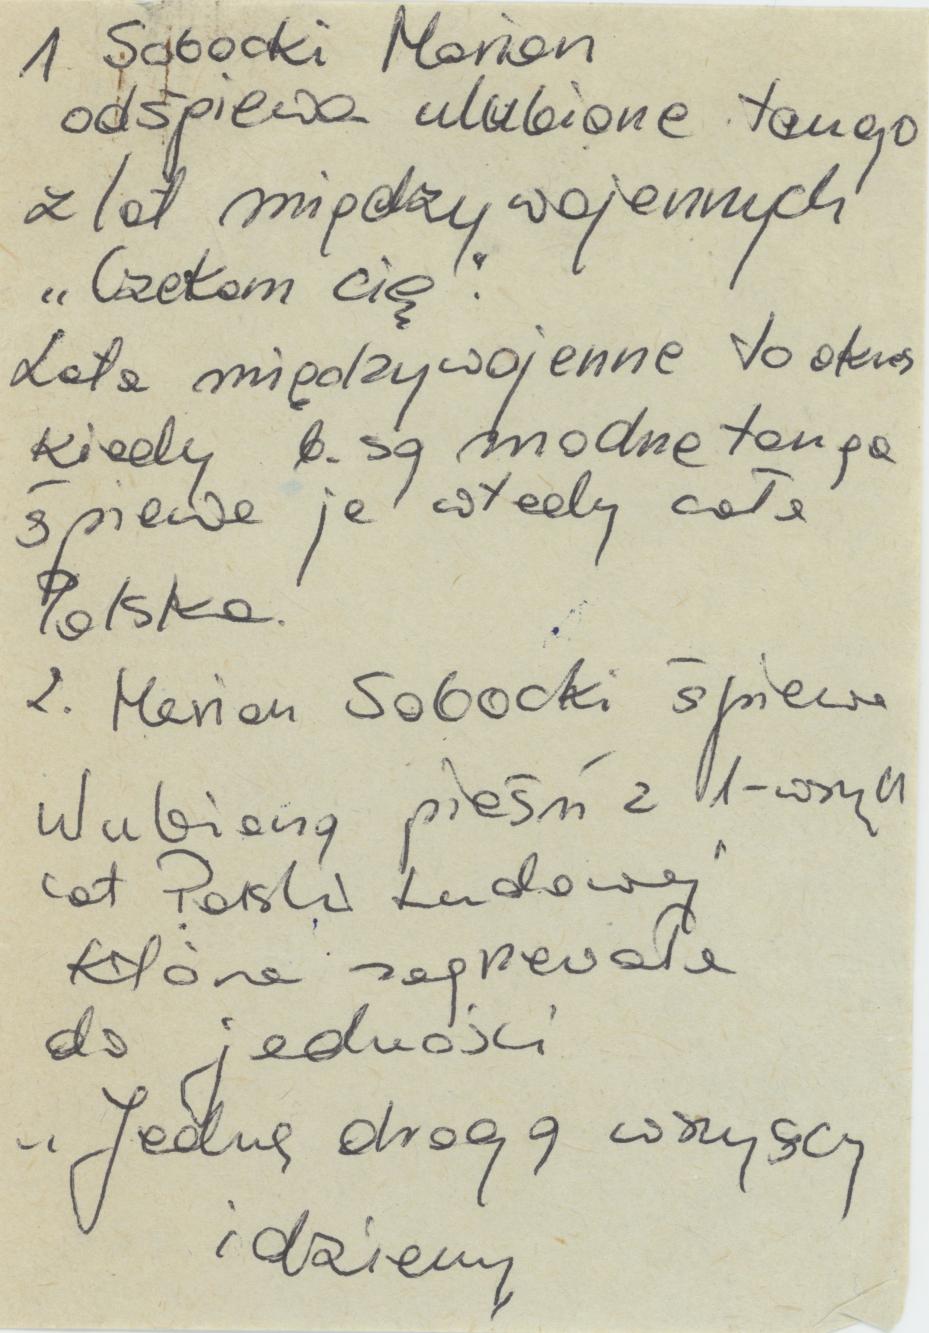 1 Sobocki Marian
odśpiewa ulubione tango
z lat międzywojennych
„Czekam cię".
Lata międzywojenne to okres
kiedy b. są modne tanga
śpiewa je wtedy cała
Polska.
2. Marian Sobocki śpiewa
ulubioną pieśń z 1-wszych
lat Polski Ludowej
która zagrzewała
do jedności
„Jedną drogą wszyscy
idziemy